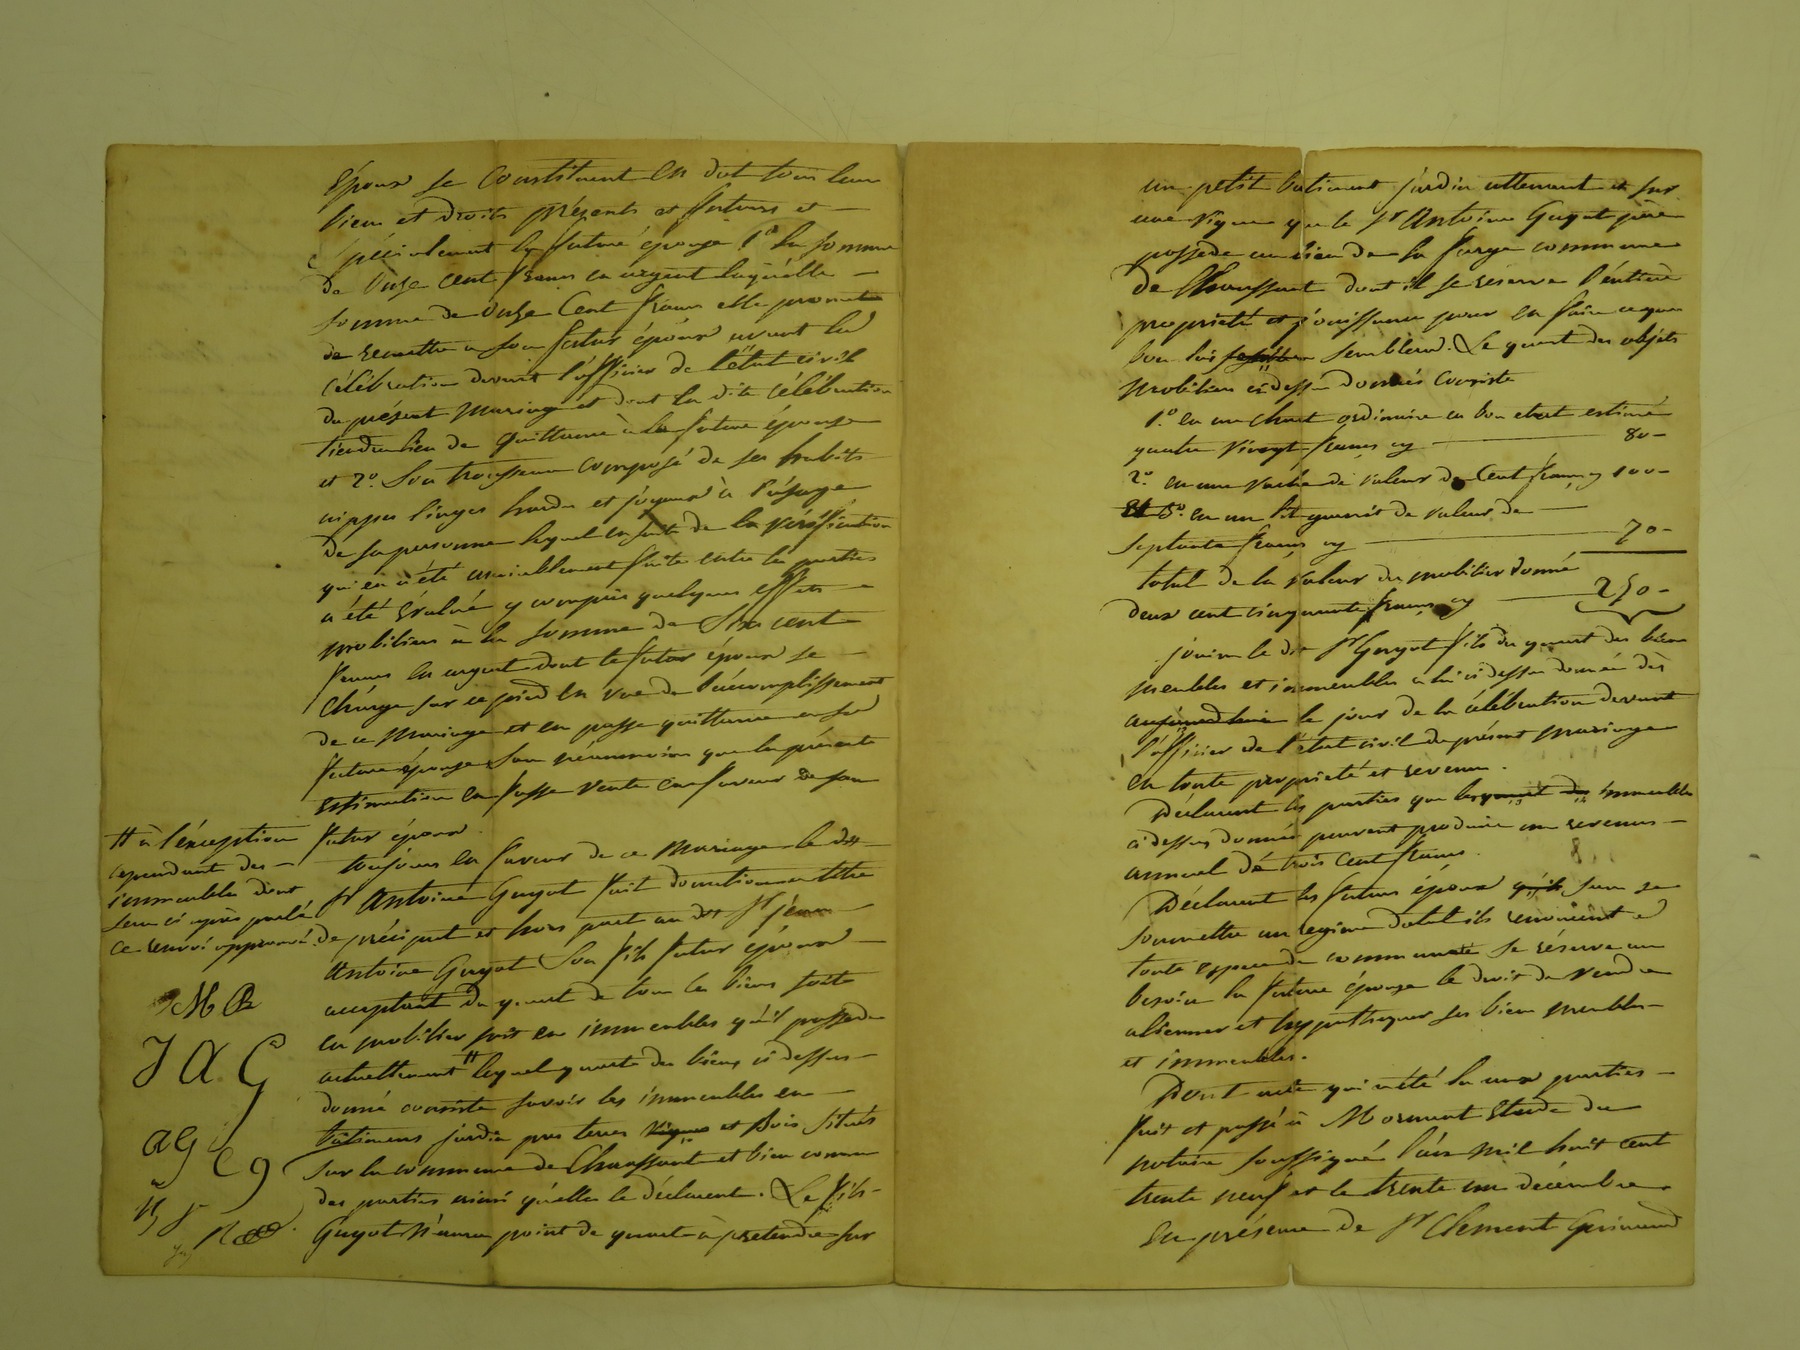 époux se constituent en dot tous leurs
biens et droits présents et futurs et
spécialement la future épouse 1º la somme
de onze cent francs en argent laquelle
somme de onze cent francs elle promet
de remettre a son futur époux avant la
célébration devant l'officier de l'état civil
du présent mariage et dont la dite célébration
tiendra lieu de quittance à la future épouse
et 2º. Son trousseau composé de ses habits
nippes linges hardes et joyaux à l'usage
de sa personne lequel ensuite de la vérification
qui en a été amiablement faite entre les parties
a été évalué y compris quelques effets
mobiliers à la somme de six cent
francs en argent dont le futur époux se
charge sur ce pied en vue de l'accomplissement
de ce mariage et en passe quittance en sa
future épouse sans néanmoins que la présente
estimation en fasse vente en faveur de son
futur époux.
toujours en faveur de ce mariage le dit
Sr Antoine Guyot fait donation en titre
de préciput et hors part au dit Sr jean
Antoine Guyot son fils futur époux
acceptant du quart de tous les biens soit
en mobilier soit en immeubles qu'il possede
actuellement # lequel quart des biens ci dessus
donné consiste savoir les immeubles en
bâtimens jardin pres terres vignes et bois situés
sur la commune de Chaussant et bien connu
des parties ainsi qu'elles le déclarent. Le fils
Guyot n'aura point de quart à pretendre sur
# à l'exception
cependant des
immeubles dont
sera ci après parlé
ce renvoi approuvé.
MB
J A G
AG CG
un petit batiment jardin attenant et sur
une vigne que le Sr Antoine Guyot père
possede au lieu de la forge commune
de Chaussant dont il se reserve l'entière
propriété et jouissance pour en faire ce que
bon lui semblera. Le quart des objets
mobiliers ci dessus donnés consiste
1º. en un char ordinaire en bon etat estimé
quatre vingt francs cy 80-
2º en une vache de valeur de cent francs cy 100-
Et 3º. en un lit garnit de valeur de
septante francs cy 70-
total de la valeur du mobilier donné
deux cent cinquante francs cy 250-
jouira le dit Sr Guyot fils du quart des biens
meubles et immeubles a lui ci dessus donnée dès
le jour de la célébration devant
l'officier de l'état civil du présent mariage
en toute propriété et revenu.
Déclarent les parties que les quart des immeubles
ci dessus donnés peuvent produire un revenus
annuel de trois cent francs.
Déclarent les futurs époux qu'ils sans se
soumettre au regime dotal ils renoncent a
toute espece de communauté se réserve au
besoin la future épouse le droit de vendre
alienner et hyppothequer ses biens meubles
et immeubles.
Dont acte qui a été lu aux parties
fait et passé à Mornant Etude du
notaire soussigné l'an mil huit cent
trente neuf et le trente un décembre
En présence de Sr Clement Grimaud